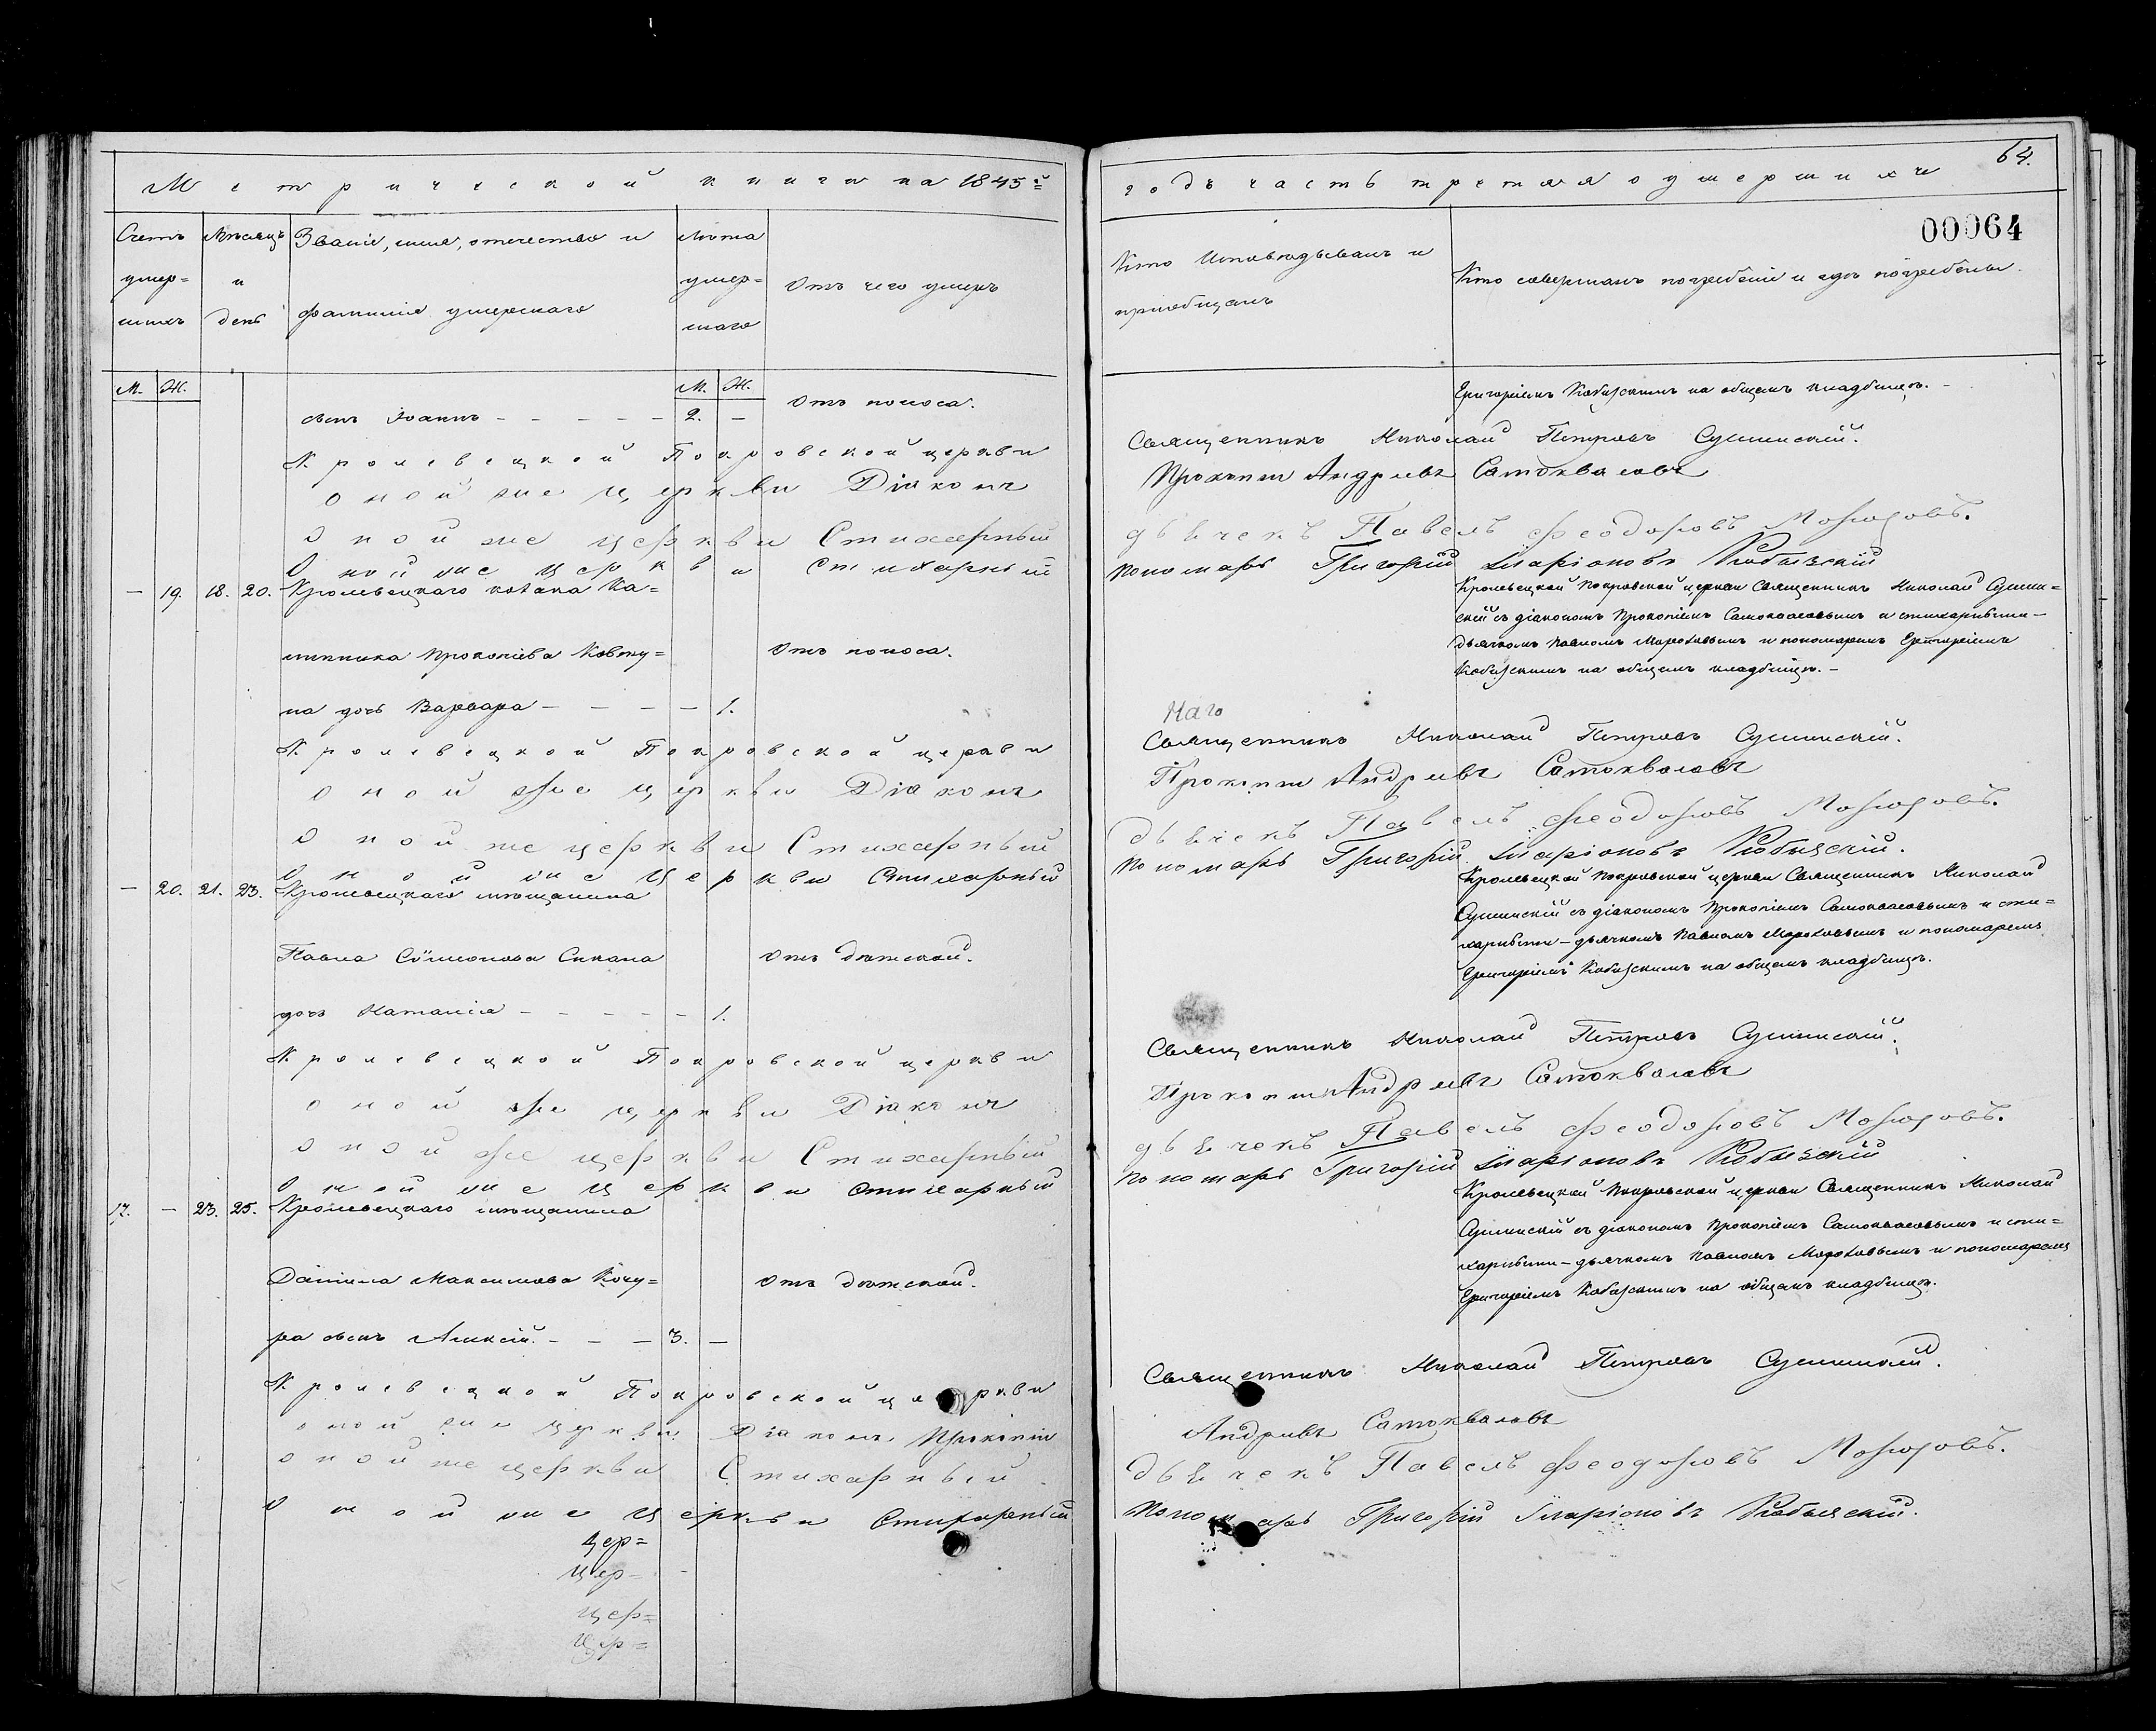 Метрической книги на 1845й
годъ часть третяя о умершихъ
64.
00064
Счетъ умер=шихъ
Мѣсяцъ и день
Званіе, имя, отечество и фамилія умершаго
Лѣта умер=шаго
Отъ чего умеръ
Кто исповѣдывалъ и пріобщалъ
Кто совершалъ погребеніе и гдѣ погребены.
М. Ж.
М. Ж.
сынъ Іоаннъ - - - - - 2. -
Отъ поноса.
Григоріемъ Кобызскимъ на общемъ кладбищѣ. -
Кролевецкой Покровской церкви Священникъ Николай Петровъ Сушинскій.
оной же церкви Діаконъ Прокопій Андреевъ Самоквасовъ
оной же церкви Стихарный дьячекъ Павелъ Феодоровъ Морозовъ.
Оной же церкви Стихарный пономарь Григорій Иларіоновъ Кобызскій
- 19. 18. 20. Кролевецкаго козака Ка=
линника Прокопіева Ковту=
на дочь Варвара - - - - 1.
Отъ поноса.
Кролевецкой Покровской церкви Священникъ Николай Сушин=
скій съ діакономъ Прокопіемъ Самоквасовымъ и стихарными -
дьячкомъ Павломъ Морозовымъ и пономаремъ Григоріемъ
Кобызскимъ на общемъ кладбищѣ. -
Наго
Кролевецкой Покровской церкви Священникъ Николай Петровъ Сушинскій.
оной же церкви Діаконъ Прокопій Андреевъ Самоквасовъ
Оной же церкви Стихарный дьячекъ Павелъ Феодоровъ Морозовъ.
Оной же Церкви Стихарный пономарь Григорій Иларіоновъ Кобызскій.
- 20. 21. 23. Кролевецкаго мѣщанина
Павла Сѵмеонова Сикана
дочь Наталія - - - - - 1.
Отъ дѣтской.
Кролевецкой Покровской церкви Священникъ Николай
Сушинскій съ діакономъ Прокопіемъ Самоквасовымъ и сти=
харными - дьячкомъ Павломъ Морозовымъ и пономаремъ
Григоріемъ Кобызскимъ на общемъ кладбищѣ.
Кролевецкой Покровской церкви Священникъ Николай Петровъ Сушинскій.
оной же церкви Діаконъ Прокопій Андреевъ Самоквасовъ
оной же церкви Стихарный дьячекъ Павелъ Феодоровъ Морозовъ.
Оной же Церкви Стихарный пономарь Григорій Иларіоновъ Кобызскій
17. - 23. 25. Кролевецкаго мѣщанина
Даніила Максимова Кочу=
ра сынъ Алексій. - - - 3. -
Отъ дѣтской.
Кролевецкой Покровской церкви Священникъ Николай
Сушинскій съ діакономъ Прокопіемъ Самоквасовымъ и сти=
харными - дьячкомъ Павломъ Морозовымъ и пономаремъ
Григоріемъ Кобызскимъ на общемъ кладбищѣ.
Кролевецкой Покровской церкви Священникъ Николай Петровъ Сушинскій.
оной же церкви Діаконъ Прокопій Андреевъ Самоквасовъ
оной же церкви Стихарный дьячекъ Павелъ Феодоровъ Морозовъ.
Оной же Церкви Стихарный пономарь Григорій Иларіоновъ Кобызскій.
Цер=
Цер=
Цер=
Цер=